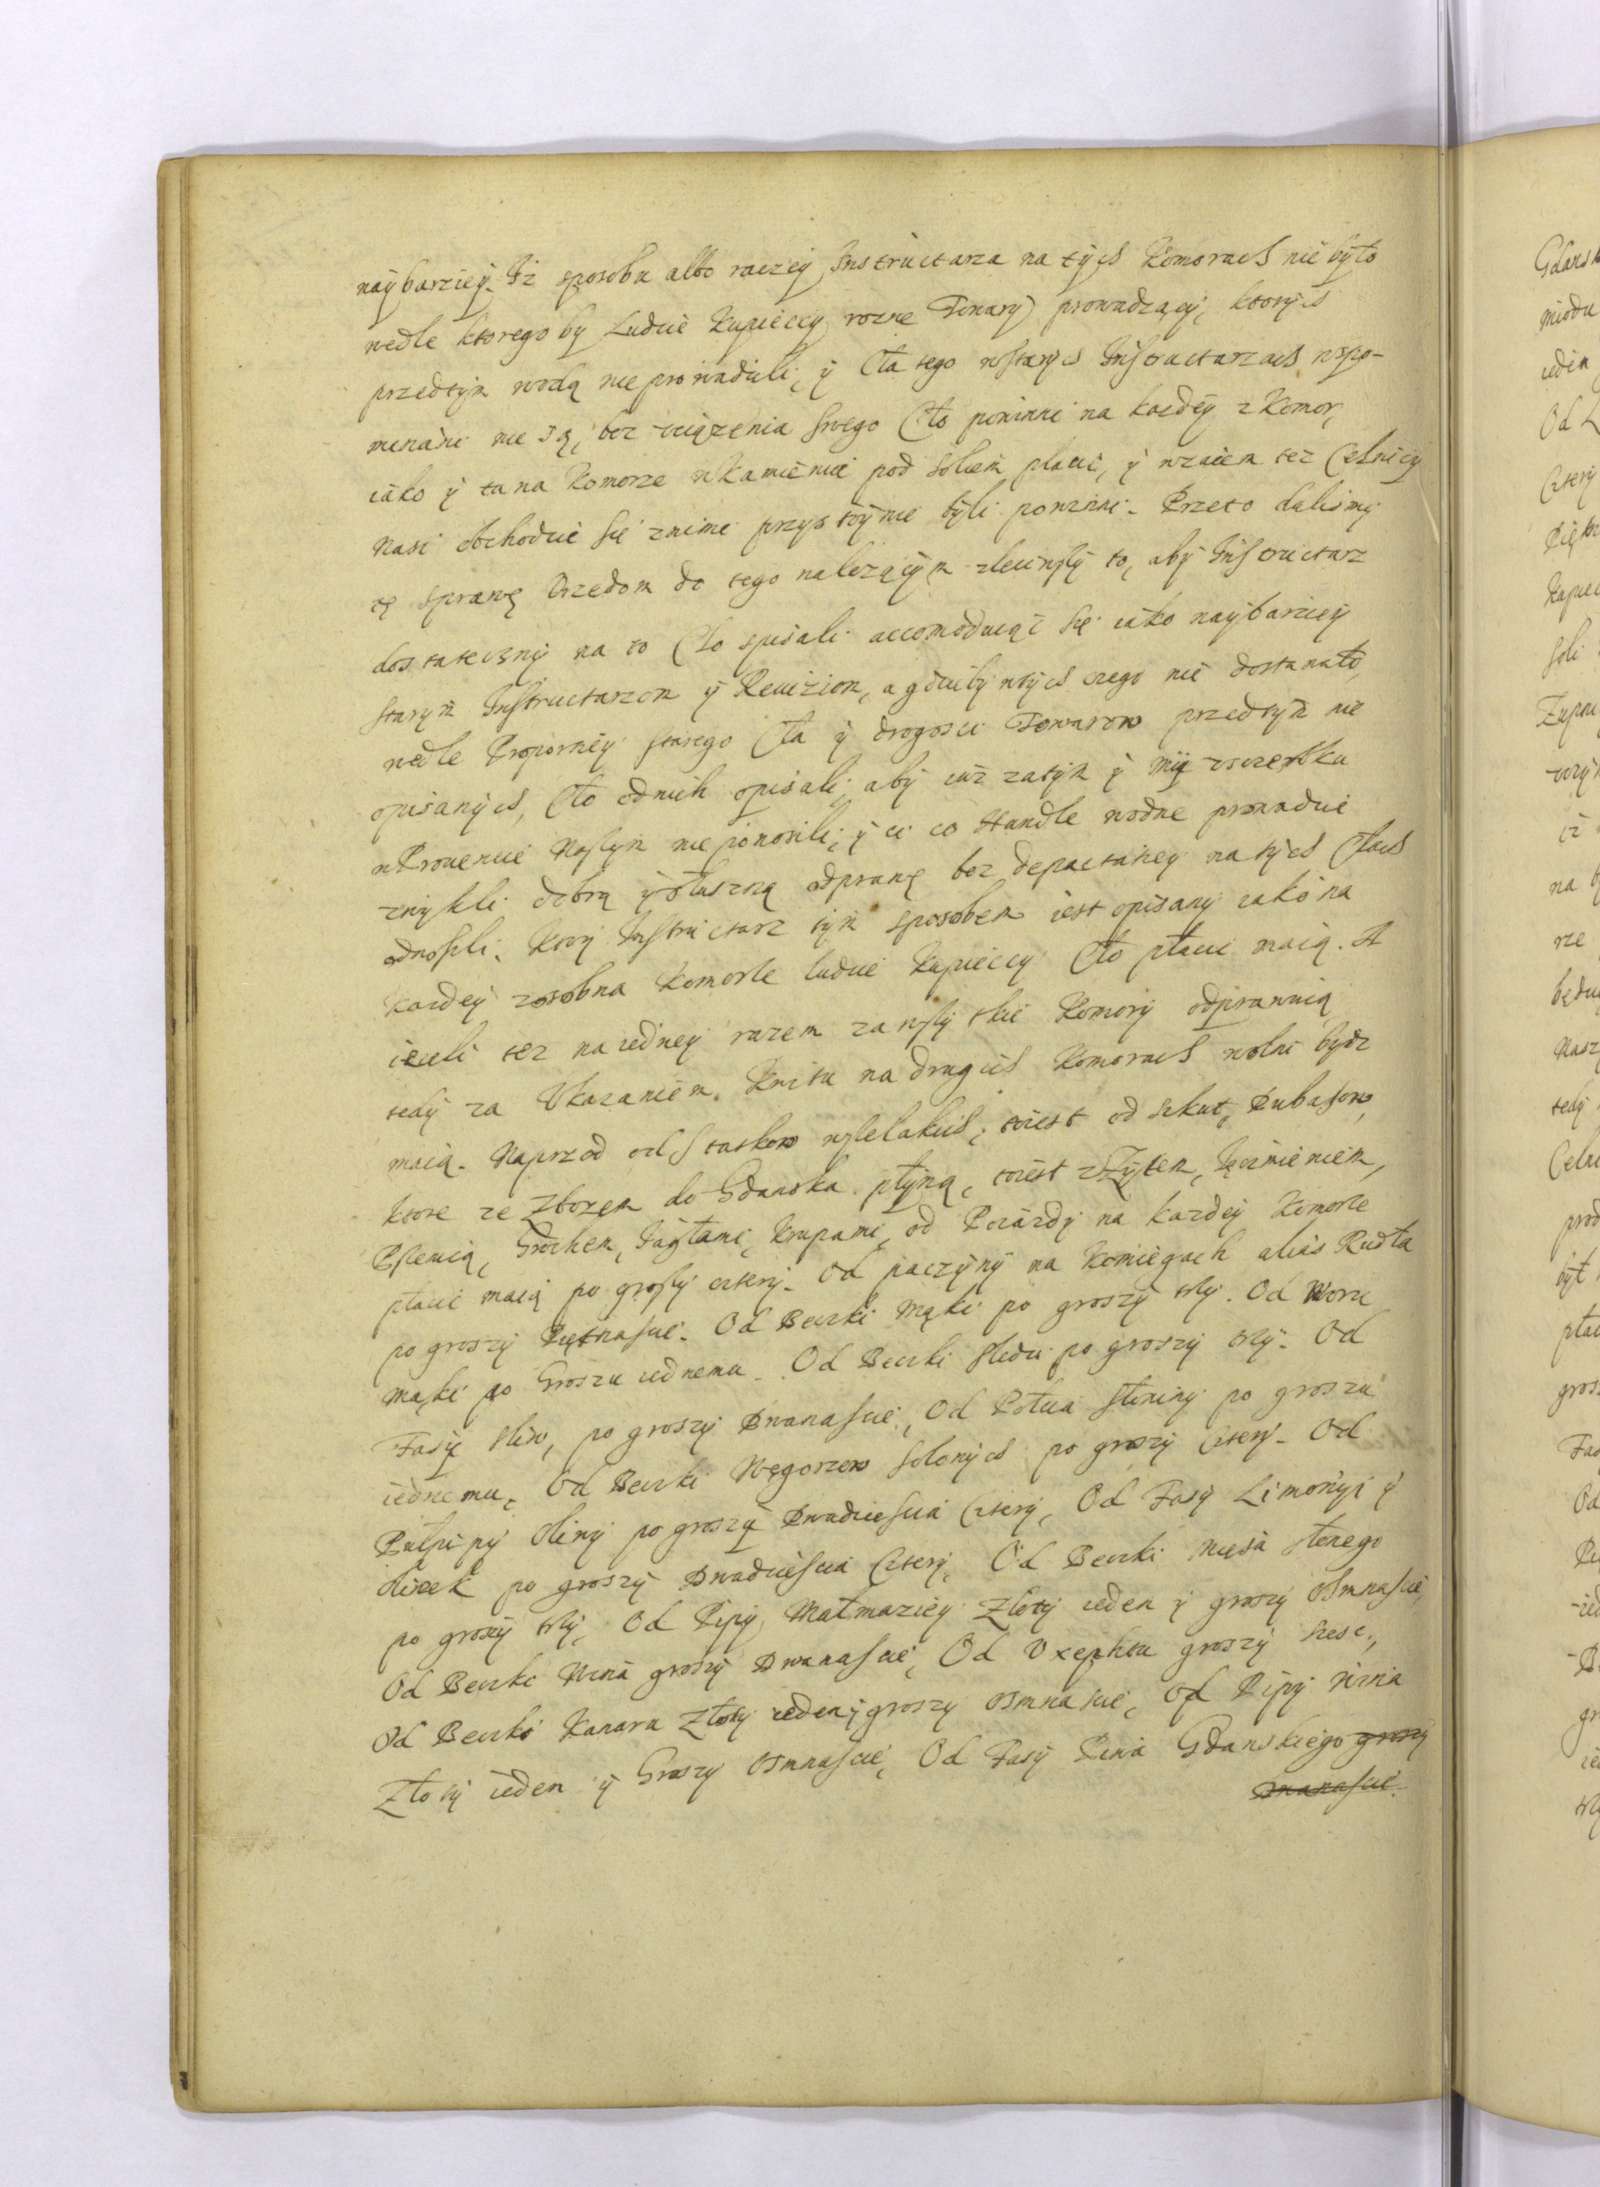 naÿbarzieÿ. Iż sposobu albo raczeÿ Instructarza na tÿch Komorach nie bÿło
wedle ktorego by Ludzie Kupieccÿ rozne Towarÿ prowadzącÿ, ktorÿch
przedtÿm wodą nie prowadzili, ÿ Cła tego wstarÿch Instructarzach wspo-
minane nie są, bez uciązenia swego Cło powinni na kazdeÿ z Komor,
iako ÿ ta na Komorze w Kamieniu pod Solcem płacić, ÿ wzaiem tez Celnicÿ
Nasi obchodzić się znimi przÿstoÿnie bÿli powinni. Przeto daliśmÿ
tę sprawę Urzędom do tego należącÿm zleciwszÿ to, abÿ Instructarz
dostatecznÿ na to Cło spisali accomoduiąc się iako naÿbarzieÿ
starÿm Instructarzom ÿ Rewiziom, a gdzieby wtÿch czego nie dostawało,
wedle Proporcÿeÿ starego Cła ÿ drogości Towarow przedtÿm nie
opisanÿch, Cło odnich opisali, abÿ iuz zatÿm ÿ Mÿ uszczerbku
w Prowencie Naszÿm nie ponosili, ÿ ci co Handle wodne prowadzić
zwÿkli dobrą ÿ słuszną odprawę bez depactaciey na tÿch Cłach
odnosili. Ktorÿ Instructarz tÿm sposobem iest opisanÿ iako na
kazdeÿ zosobna Komorze ludzie Kupieccÿ Cło płacić maią. A
iezeli tez na iedneÿ razem za wszÿtkie Komorÿ odprawuią
tedÿ za Ukazaniem Kwitu na drugich Komorach wolni bydz
maią. Naprzod od Statkow wszelakich, toiest od szkut, Dubasow,
ktore ze Zbozem do Gdanska płÿną, toiest z Zÿtem, Jęczmieniem,
Pszenicą, Grochem, Jagłami, Krupami, od Poiazdÿ na kazdeÿ Komorze
płacić maią po groszÿ czterÿ. Od paczÿnÿ na Komiegach alias Rudła
po groszÿ Piętnascie. Od Beczki Mąki po groszÿ trzÿ. Od Wora
Mąki po Groszu iednemu. Od Beczki śledzi po groszÿ trzÿ. Od
Fasÿ sliw, po groszÿ Dwanascie, Od Połcia słoninÿ po groszu
iednemu, Od Beczki Węgorzow solonÿch po groszÿ czterÿ. Od
Oliwÿ po groszÿ Dwadziescia Czterÿ, Od Fasÿ Limonÿi ÿ
Oliwek po groszÿ Dwadziescia Czterÿ, Od Beczki Mięsa słonego
po groszÿ trzÿ, Od Pipÿ Małmazieÿ Złotÿ ieden ÿ groszÿ Osmnascie,
Od Beczki Wina groszÿ Dwanascie, Od Uxephtu groszÿ szesc,
Od Beczki Kanaru Złotÿ ieden ÿ groszÿ Osmnascie, Od Pipÿ Wina
Złotÿ ieden ÿ Groszÿ Osmnascie, Od Fasÿ Piwa Gdanskiego groszÿ
Dwanascie.